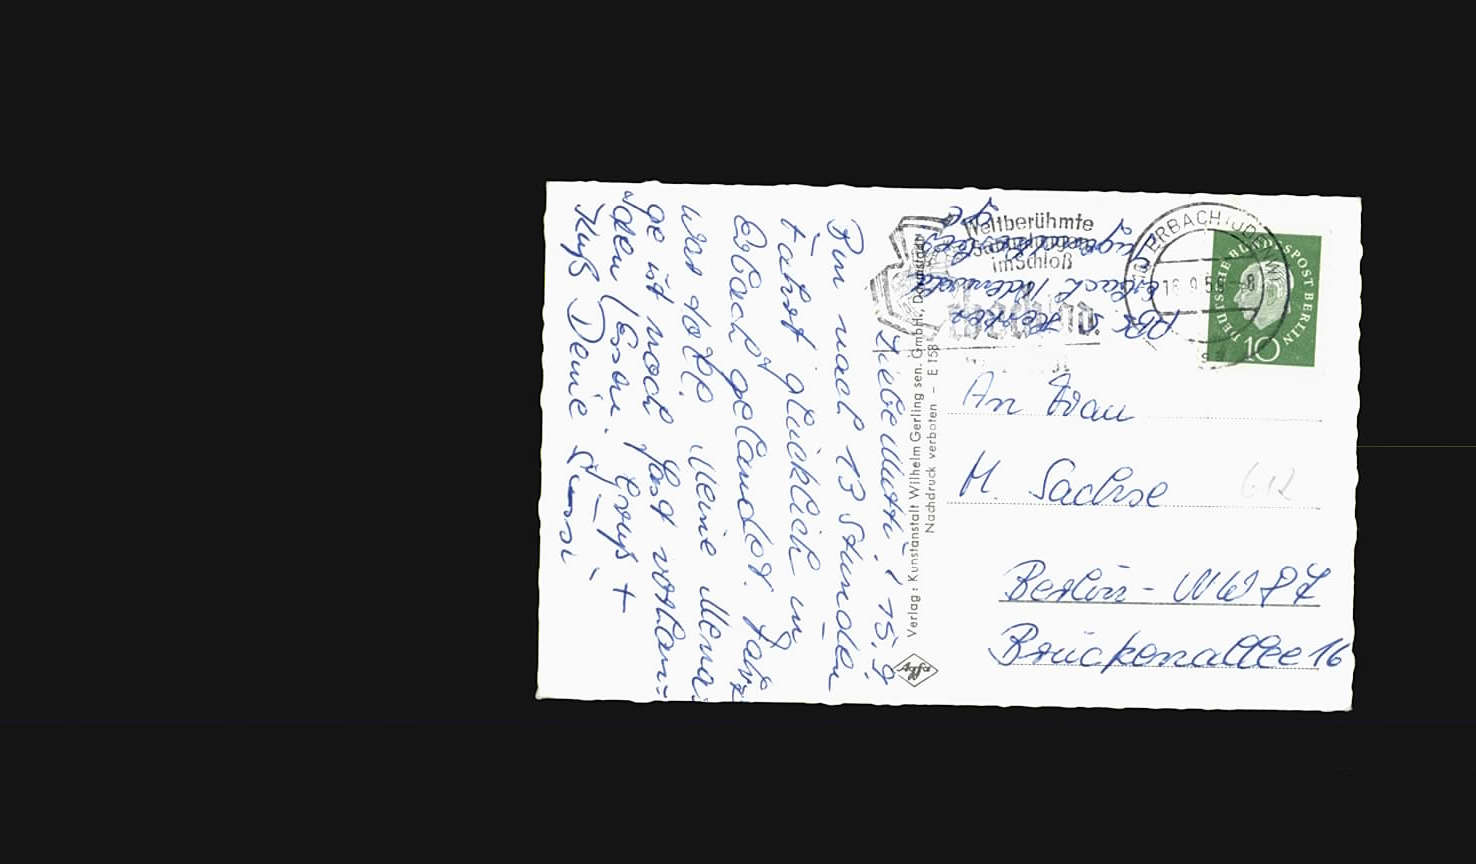 Liebe Mutti! 15.9.
Bin nach 13 Stunden
Fahrt glücklich in
Erbach gelandet. Fahrt
war toll. Meine Mena-
ge ist noch fast vorhan=
den (Essen). Gruß +
Kuß Deine
Verlag: Kunstanstalt Wilhelm Gerling sen. GmbH., Darmstadt
Nachdruck verboten - E 158
Weltberühmte
Sammlungen
im Schloß
Erbach i. Od.
ERBACH (ODENW)
16.9.59-8
DEUTSCHE BUNDESPOST BERLIN
10
Abs. Herker
Erbach/Odenwald
An Frau
M. Sachse
Berlin-NW 87
Brückenallee 16